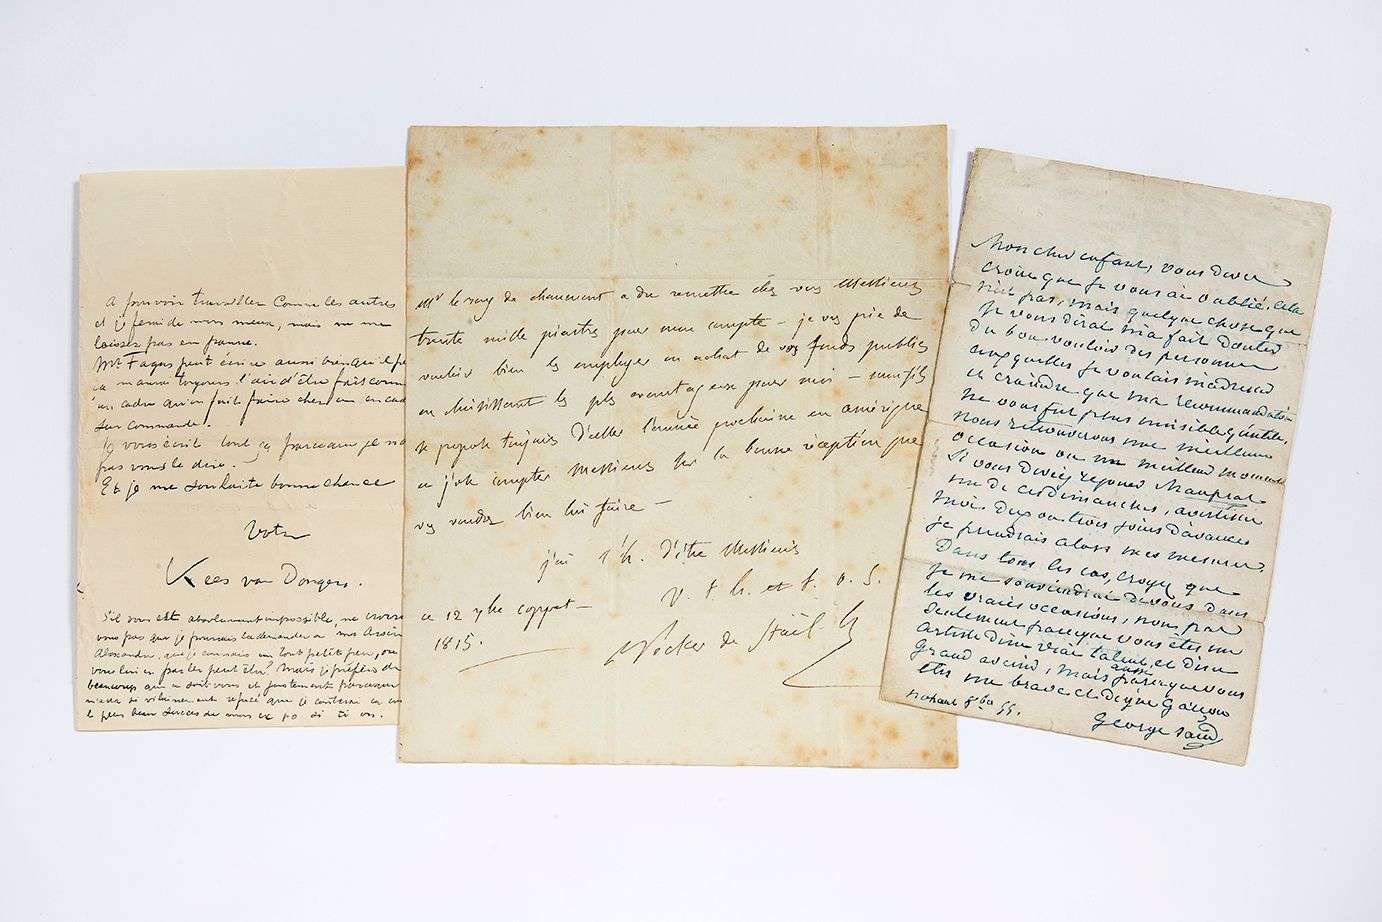 A pouvoir travailler comme les autres
et je ferai de mon mieux, mais ne me
laissez pas en panne.
Mr. Fages peut écrire aussi bien qu'il
ça m'aura toujours l'air d'être fait comme
un cadre qu'on fait faire chez un
sur commande.
Je vous écris tout ça parceque je
pas vous le dire.
Et je me souhaite bonne chance
Votre
Kees van Dongen.
S'il vous est absolument impossible, ne
vous pas que je pourrais demander a mr
Alexandre, que je connais un tout petit peu, ou
vous lui en parler peut être? Mais je préfère de
beaucoup que ça soit vous et justement parceque
le plus beau
Mr le ray de chaumont a du remettre chez vous Messieurs
trente mille piastres pour mon compte – je vous prie de
vouloir bien les employer en achat de vos fonds publics
en choisissant les plus avantageux pour moi – mon fils
se propose toujours d'aller l'année prochaine en amérique
et j'ose compter Messieurs sur la bonne réception que
vous voudrez bien lui faire –
j'ai l'h. d'être Messieurs
v. t. h. et t. o. S.
ce 12 coppet –
1815.
Necker de Staël h
Mon cher enfant, vous devez
croire que je vous ai oublié, cela
n'est pas, mais quelque chose que
je vous dirai m'a fait douter
du bon vouloir des personnes
auxquelles je voulais m'adresser
et craindre que ma recommandation
ne vous fut plus nuisible qu'utile,
nous retrouverons une meilleure
occasion ou un meilleur moment
Si vous deviez rejouer Mauprat
un de ces dimanches, avertissez
moi deux ou trois jours d'avance
je prendrais alors mes mesures
Dans tous les cas, croyez que
je me souviendrai de vous dans
les vraies occasions, non pas
seulement parceque vous êtes un
artiste d'un vrai talent et d'un
grand avenir, mais aussi parceque vous
êtes un brave et digne garçon
George Sand
nohant 8bre 55.